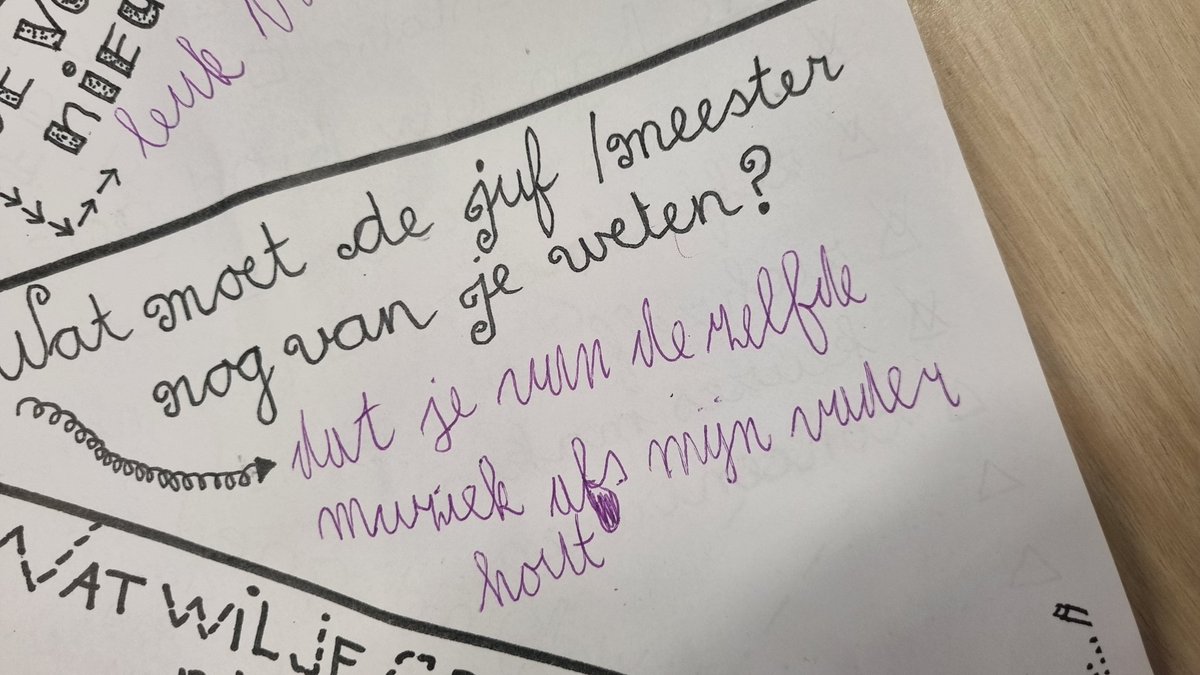 nieu
leuk
Wat moet de juf /meester
nog van je weten?
dat je van de zelfde
muziek als mijn vader
hout
WAT WIL JE